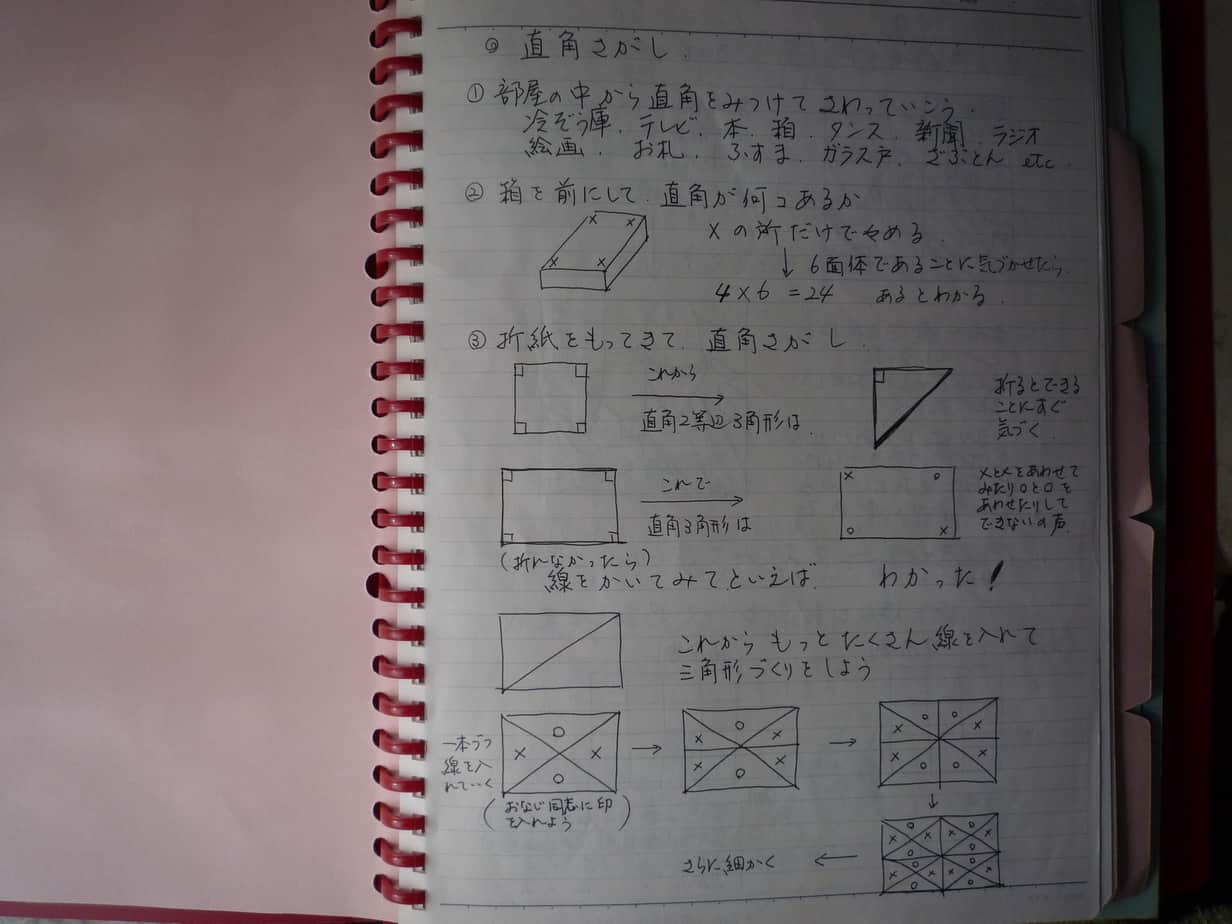 ◎ 直角さがし.
① 部屋の中から直角をみつけてさわっていこう.
冷ぞう庫. テレビ. 本. 箱. タンス. 新聞. ラジオ
絵画. お札. ふすま. ガラス戸. ざぶとん etc.
② 箱を前にして. 直角が何コあるか
× × × ×
×の所だけでやめる.
↓ 6面体であることに気づかせたら.
4×6=24 あるとわかる.
③ 折紙をもってきて. 直角さがし.
これから
→
直角2等辺3角形は.
折るとできる
ことにすぐ
気づく.
これで
→
直角3角形は
× ○
○ ×
×と×をあわせて
みたり○と○を
あわせたりして
できないの声.
(折んなかったら)
線をかいてみて. といえば. わかった!
これからもっとたくさん線を入れて
三角形づくりをしよう
一本づつ
線を入
れていく
(おなじ同志に印
を入れよう)
さらに細かく ←